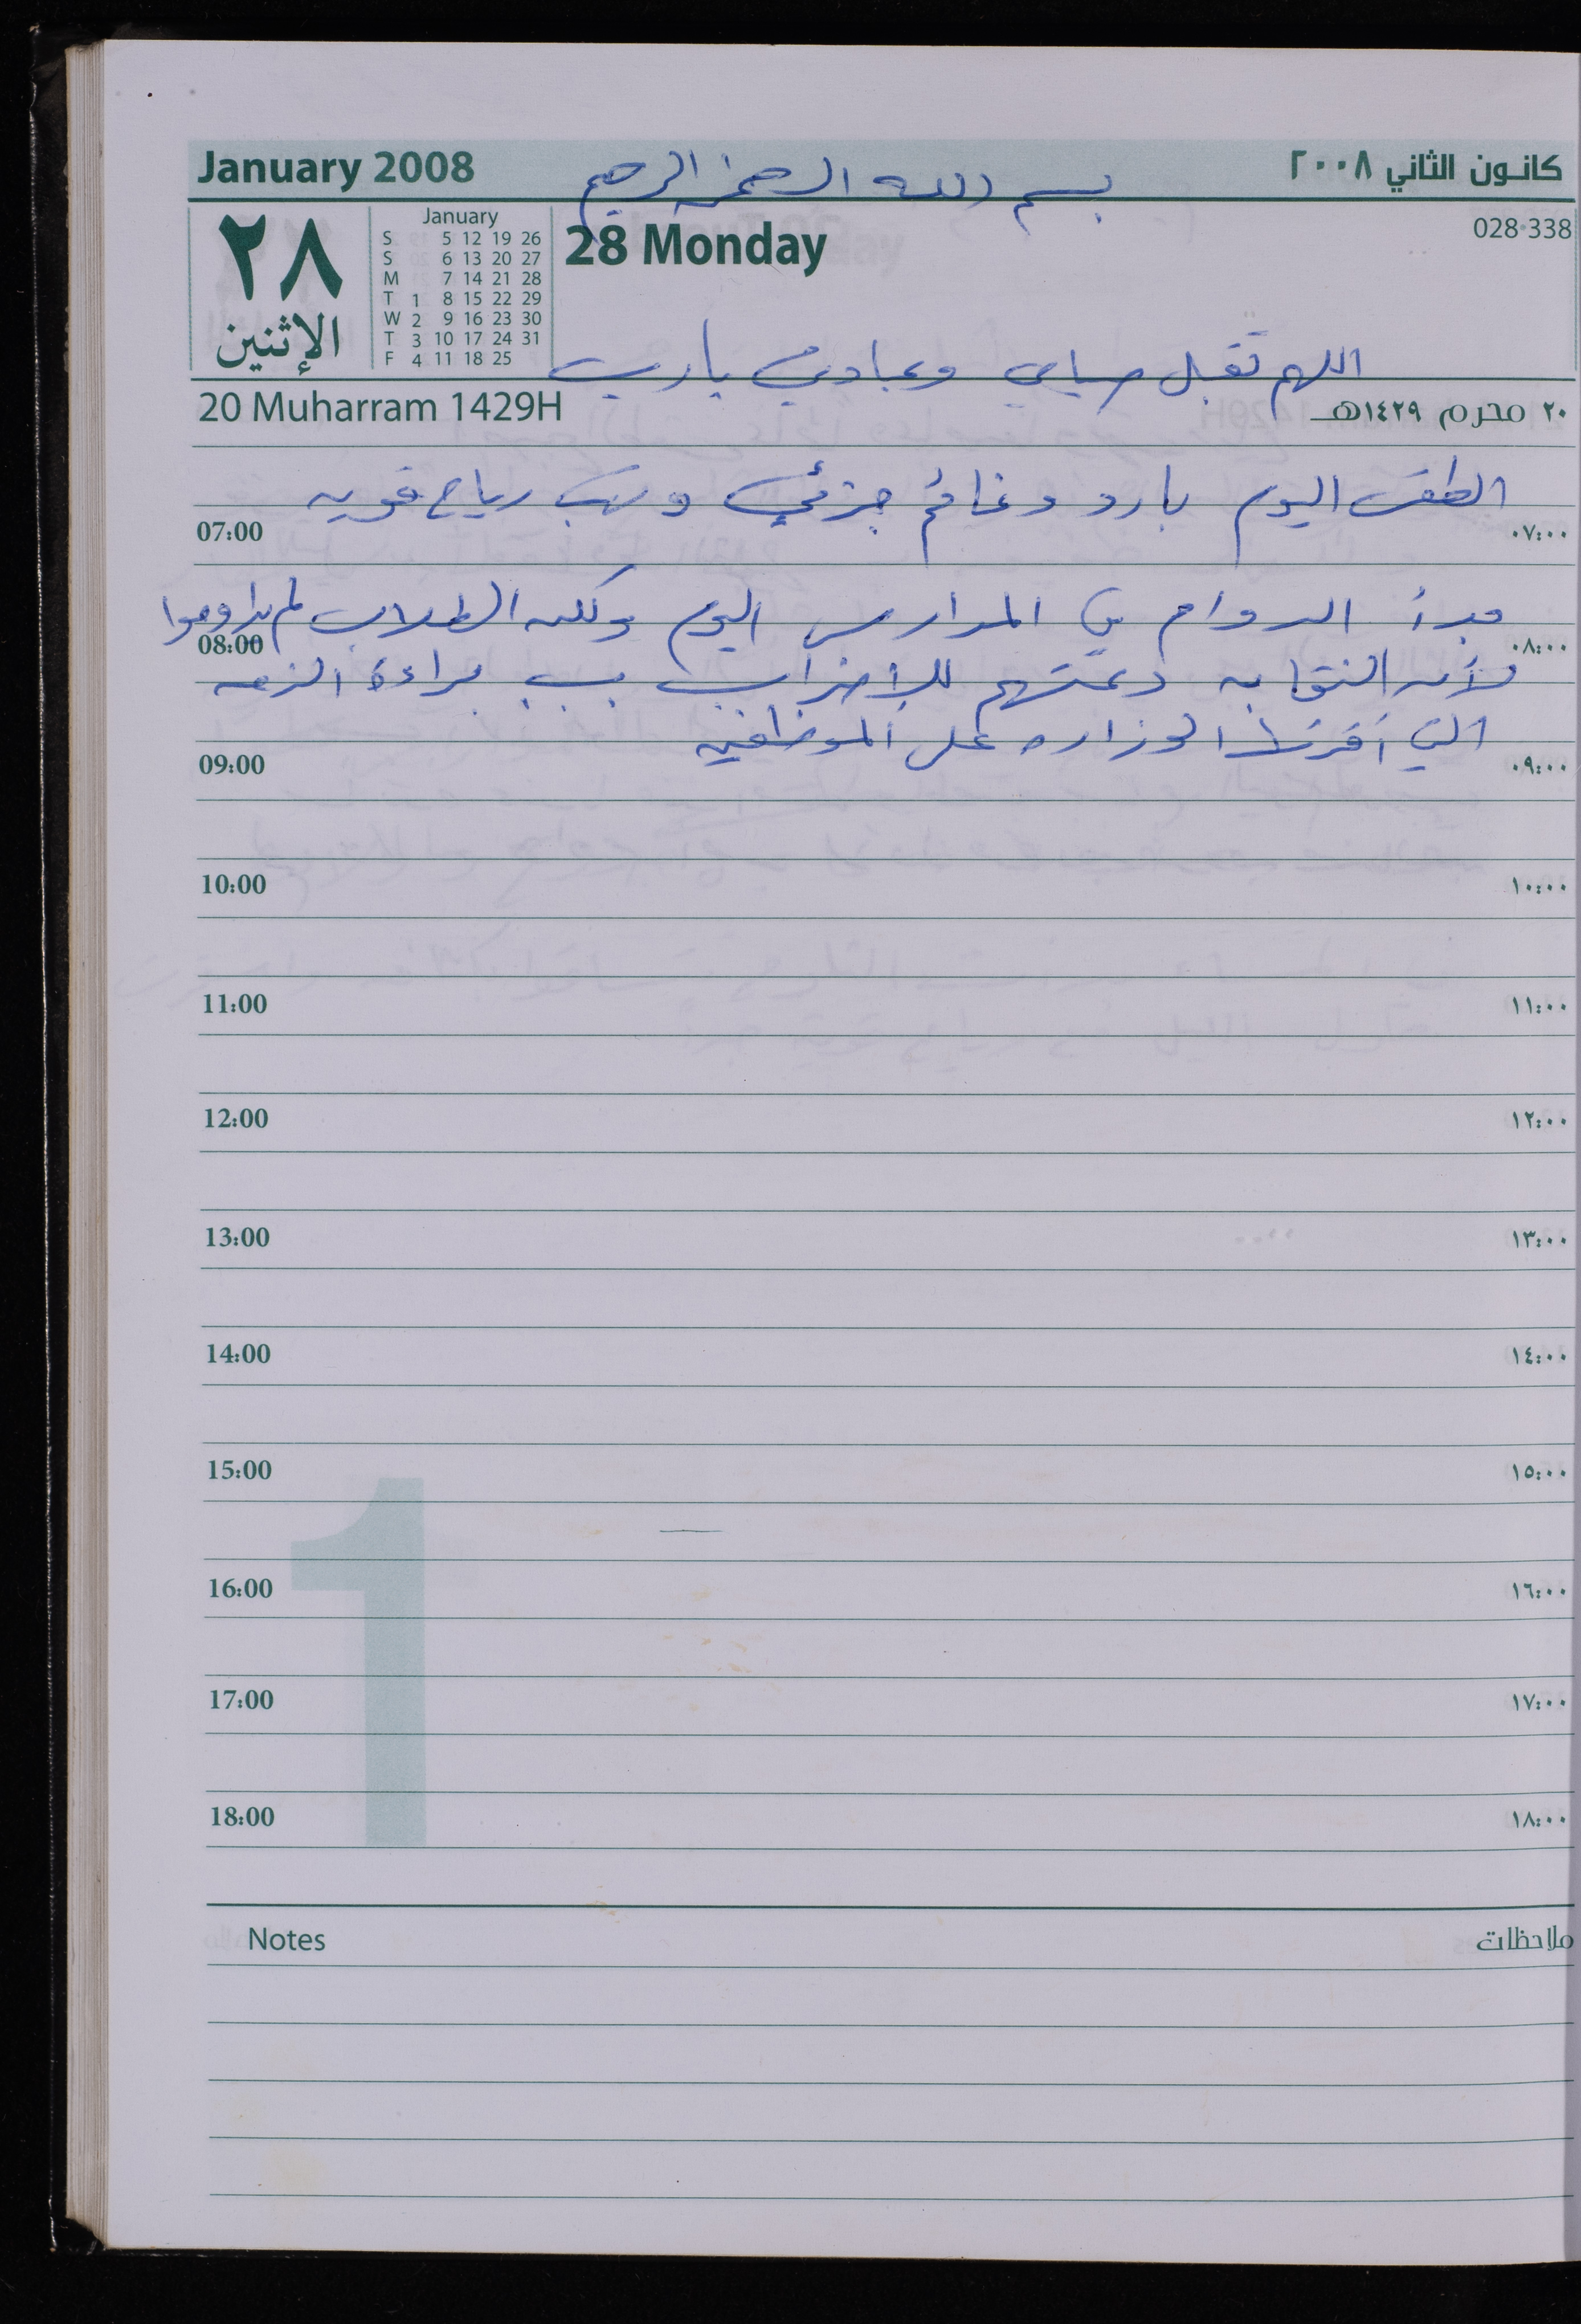 January 2008 كانون الثاني ٢٠٠٨
بسم الله الرحمن الرحيم
٢٨
الإثنين
January
S 5 12 19 26
S 6 13 20 27
M 7 14 21 28
T 1 8 15 22 29
W 2 9 16 23 30
T 3 10 17 24 31
F 4 11 18 25
28 Monday
028-338
اللهم تقبل صيامي وعبادتي يا رب
20 Muharram 1429H ٢٠ محرم ١٤٢٩هـ
الطقس اليوم بارد وغائم جزئي وتهب رياح قويه
07:00 ٠٧:٠٠
مبدأ الدوام في المدارس اليوم ولكن الطلاب لم يداوموا
08:00 ٠٨:٠٠
لأن النقابه دعتهم للإضراب بسبب براءة الذمه
التي أقرتها الوزاره على الموظفين
09:00 ٠٩:٠٠
10:00 ١٠:٠٠
11:00 ١١:٠٠
12:00 ١٢:٠٠
13:00 ١٣:٠٠
14:00 ١٤:٠٠
15:00 ١٥:٠٠
16:00 ١٦:٠٠
17:00 ١٧:٠٠
18:00 ١٨:٠٠
1
Notes ملاحظات